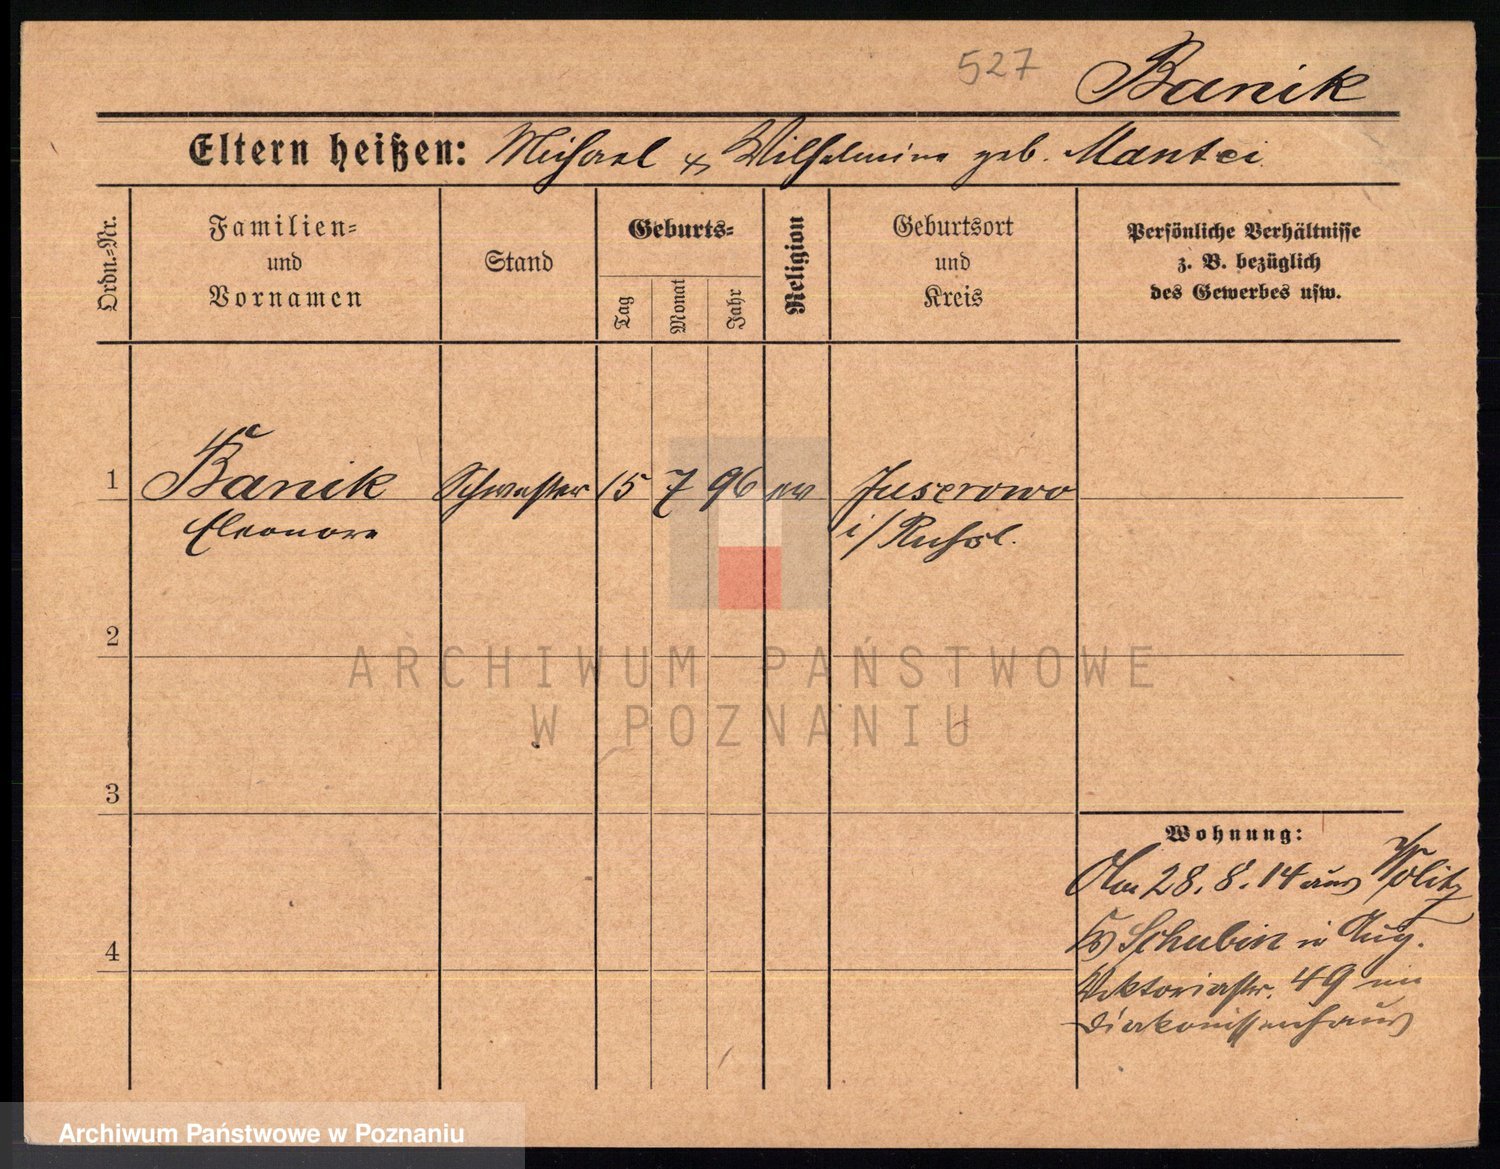 527
Banik
Eltern heißen: Michael & Wilhelmine geb. Mantei
Ordn.-Nr.
Familien=
und
Vornamen
Stand
Geburts=
Tag
Monat
Jahr
Religion
Geburtsort
und
Kreis
Persönliche Verhältnisse
z. B. bezüglich
des Gewerbes usw.
1 Banik Schwester 15 7 96 ev Juserowo
Eleonore i/Russl.
2
ARCHIWUM PAŃSTWOWE
W POZNANIU
3
Wohnung:
28.8.14 aus Wolitz
Schubin in Aug.
4
Viktoriastr. 49 im
Diakonissenhaus
Archiwum Państwowe w Poznaniu